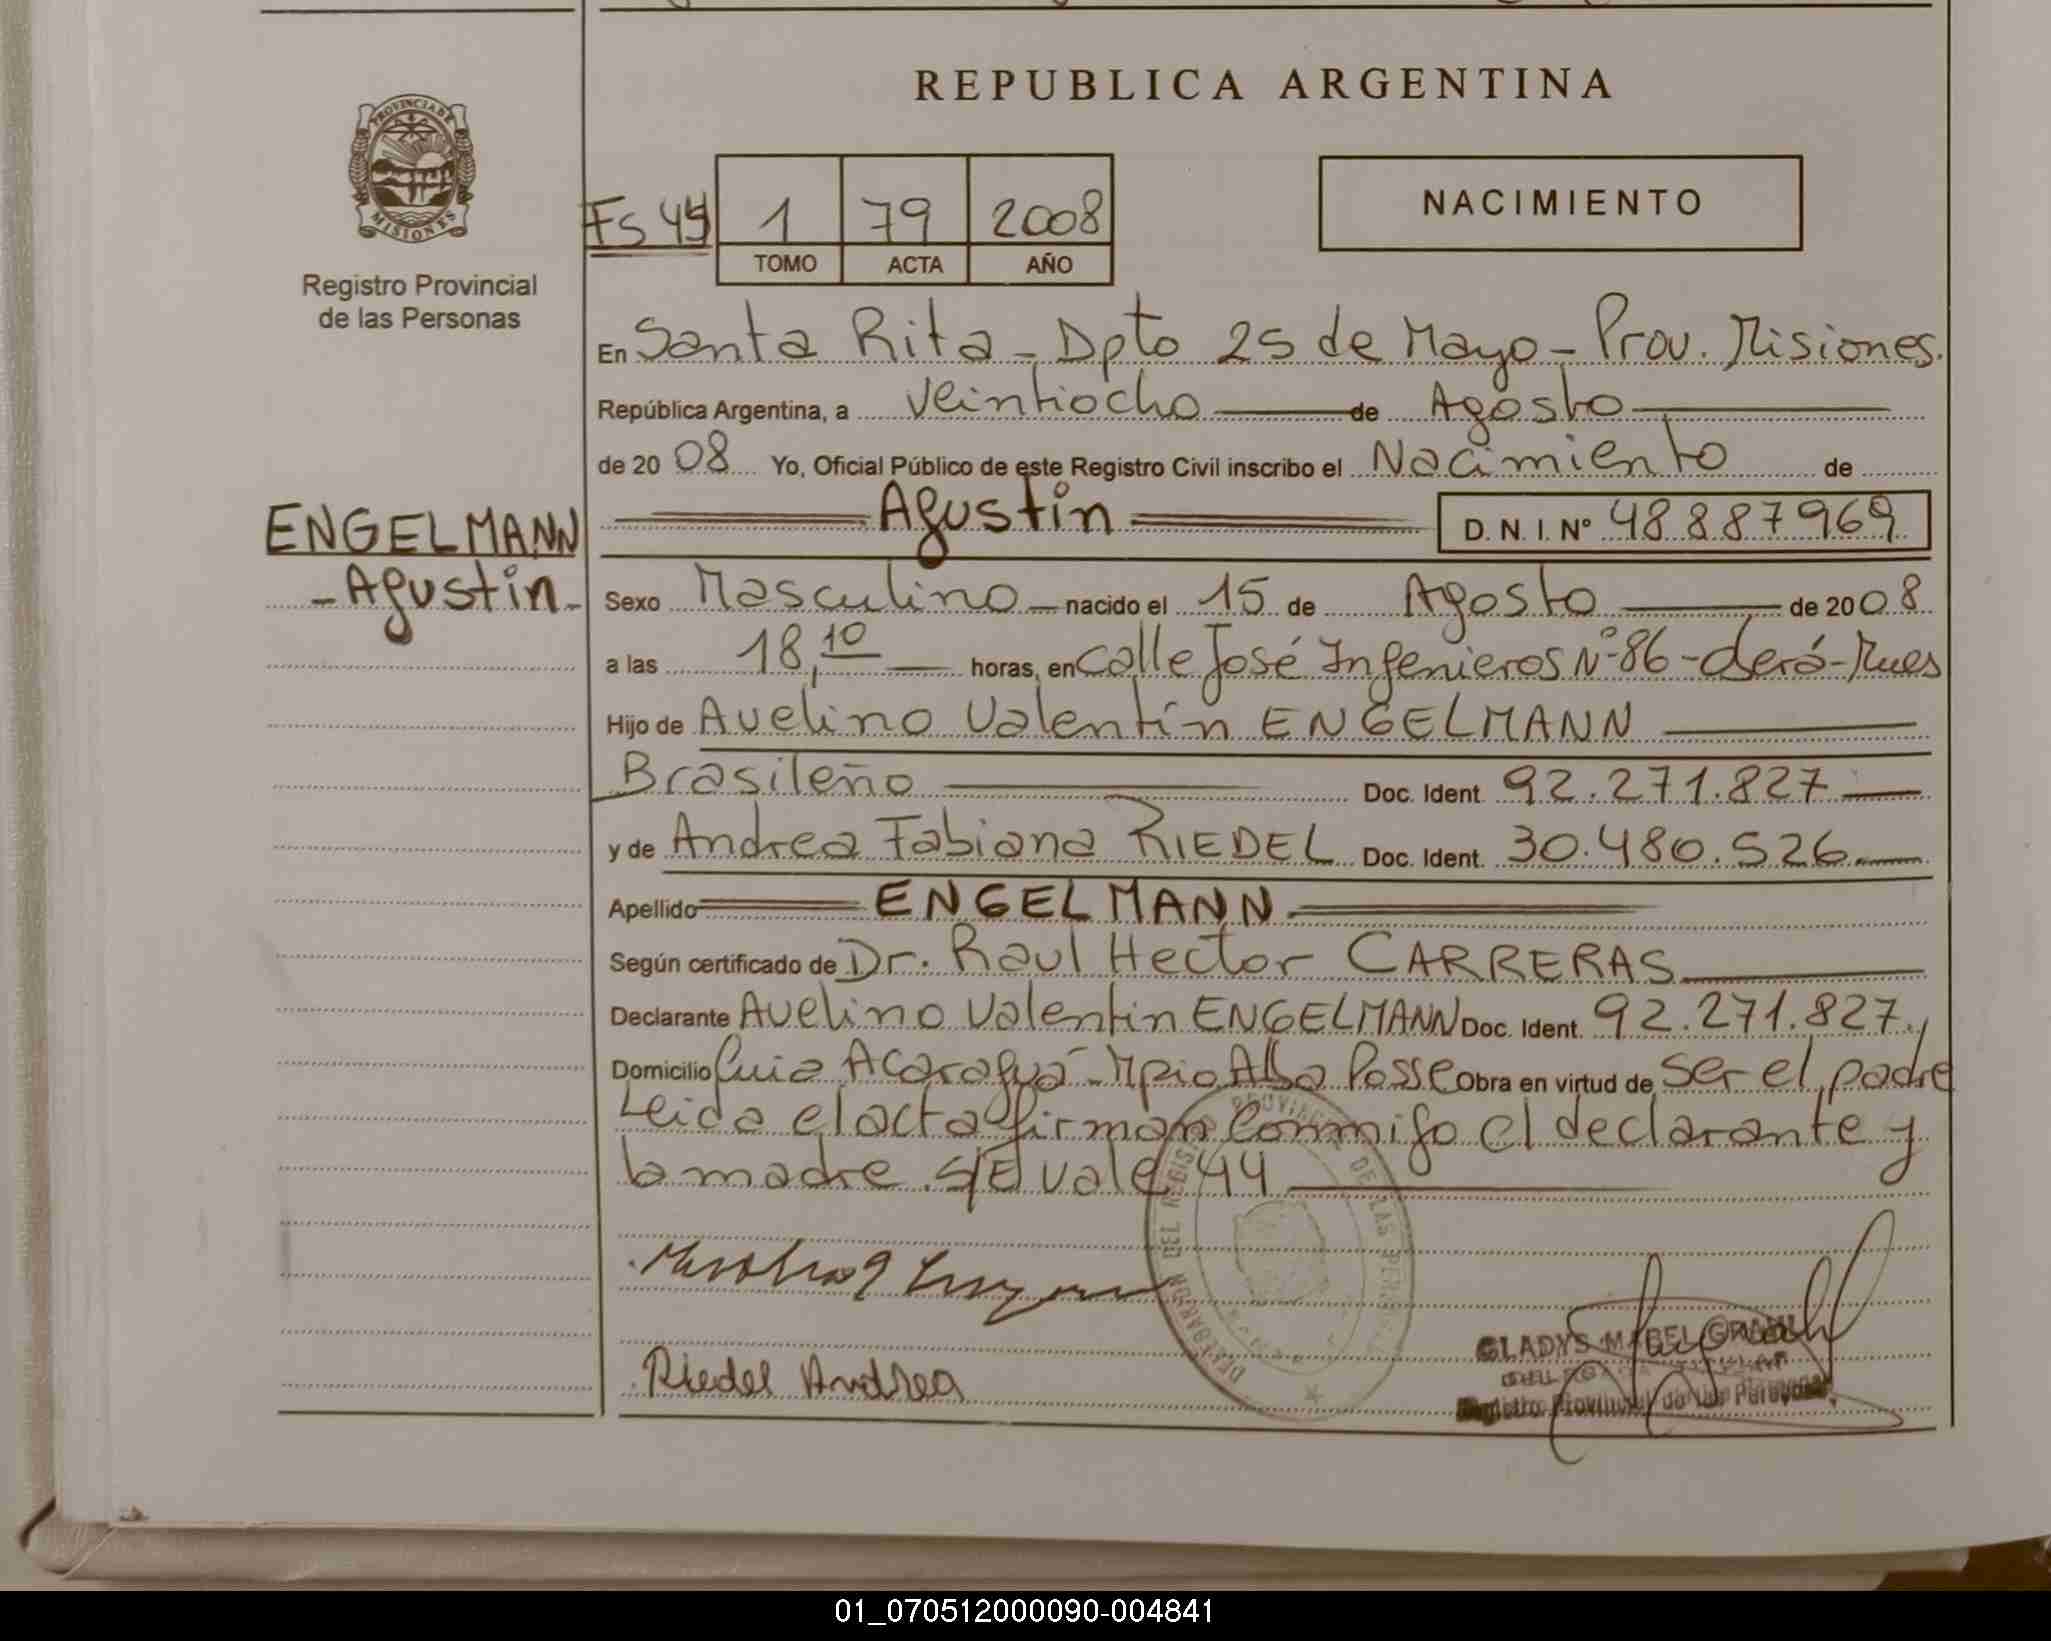 REPUBLICA ARGENTINA
PROVINCIA DE
MISIONES
Registro Provincial
de las Personas
NACIMIENTO
Fs 44 1 79 2008
TOMO ACTA AÑO
En Santa Rita - Dpto 25 de Mayo - Prov. Misiones.
República Argentina, a veintiocho de Agosto
de 2008 Yo, Oficial Público de este Registro Civil inscribo el Nacimiento de
Agustín D. N. I. Nº 48887969
ENGELMANN
- Agustín -
Sexo Masculino nacido el 15 de Agosto de 2008
a las 18,10 horas, en calle José Ingenieros Nº 86 - Oberá - Mnes
Hijo de Avelino Valentín ENGELMANN
Brasileño Doc. Ident. 92.271.827
y de Andrea Fabiana RIEDEL Doc. Ident. 30.480.526
Apellido ENGELMANN
Según certificado de Dr. Raul Hector CARRERAS
Declarante Avelino Valentín ENGELMANN Doc. Ident. 92.271.827.
Domicilio Acaraguá - Mpio Alba Posse Obra en virtud de ser el padre
Leida el acta firman conmigo el declarante y
la madre. S/E vale 44
DELEGACION DEL REGISTRO PROVINCIAL DE LAS PERSONAS
Riedel Andrea
GLADYS MABEL
Registro Provincial de las Personas
01_070512000090-004841